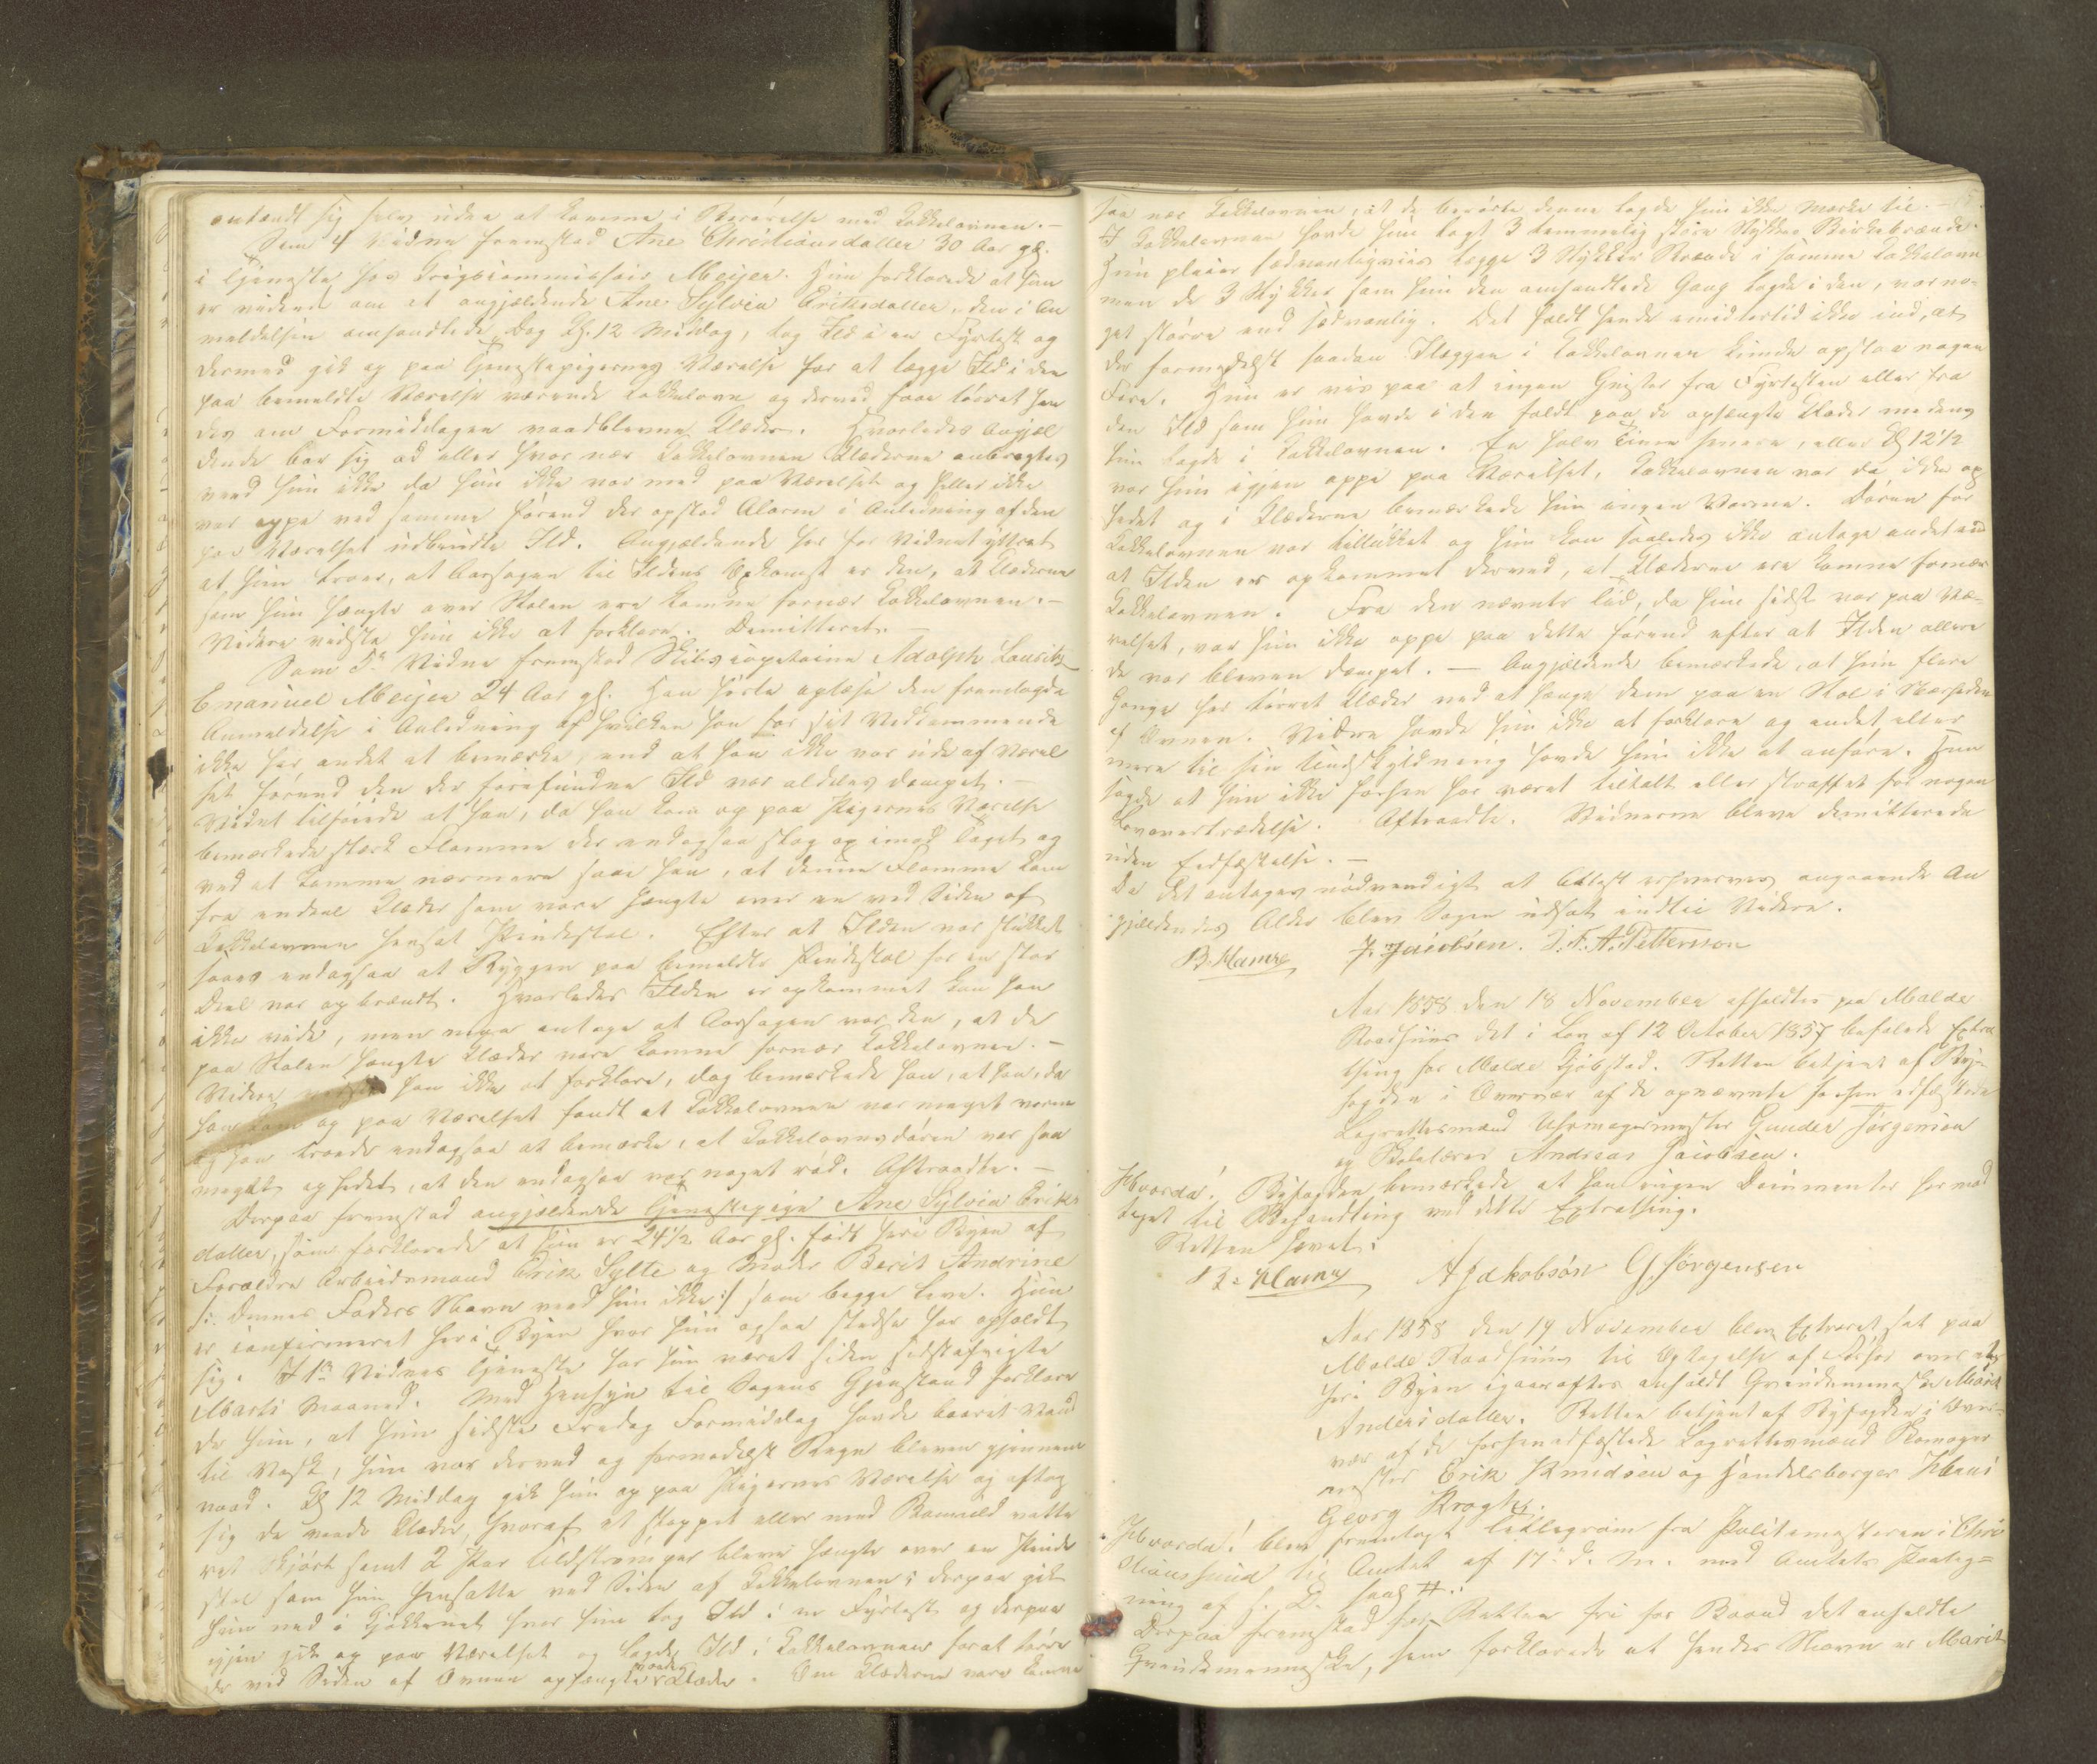 antændt sig selv uden at komme i Berørelse med Kakkelovnen. –
Som 4 Vidne fremstod Ane Christiansdatter 30 Aar gl.
i Tjeneste hos Krigscommissair Meijer. Hun forklarede at hun
er vidende om at angjældende Ane Sylvia Eriksdatter, den i An
meldelsen omhandlede Dag Kl. 12 Middag, tog Ild i en Fyrfast og
dermed gik op paa Tjenestepigernes Værelse for at lægge Ild i den
paa bemeldte Værelse værende Kakkelovn og derved faae tørret hen
des om Formiddagen vaadblevne Klæder. Hvorledes Angjæl
dende bar sig ad eller hvor nær Kakkelovnen Klæderne anbragtes
veed hun ikke da hun ikke var med paa Værelset og heller ikke
var oppe ved samme førend der opstod Alarm i Anledning af den
paa Værelset udbrudte Ild. Angjældende har for Vidnet yttret
at hun troer, at Aarsagen til Ildens Opkomst er den, at Klæderne
som hun hængte over Stolen ere komne fornær Kakkelovnen. –
Videre vidste hun ikke at forklare. Demitteret. –
Som 5te Vidne fremstod Skibscapitaine Adolph Lausitz
Emanuel Meijer 24 Aar gl. Han hørte oplæse den fremlagde
Anmeldelse i Anledning af hvilken han for sit Vedkommende
ikke har andet at bemærke, end at han ikke var ude af Værel
set førend den der forefundne Ild var aldeles dæmpet. –
Vidnet tilføiede at han, da han kom op paa Pigernes Værelse
bemærkede stærk Flamme der endogsaa slog op imod Taget og
ved at komme nærmere saae han, at denne Flamme kom
fra endeel Klæder som vare hængte over en ved Siden af
Kakkelovnen hensat Pindestol. Efter at Ilden var slukket
saaes endogsaa at Ryggen paa bemeldte Pindestol for en stor
Deel var opbrændt. Hvorledes Ilden er opkommet kan han
ikke vide, men maa antage at Aarsagen var den, at de
paa Stolen hængte Klæder vare komne fornær Kakkelovnen. –
Videre vidste han ikke at forklare, dog bemærkede han, at han, da
han kom op paa Værelset fandt at Kakkelovnen var meget varm
og han troede endogsaa at bemærke, at Kakkelovnsdøren var saa
meget ophedet, at den endogsaa var noget rød. Aftraadte. –
Derpaa fremstod angjældende Tjenestepige Ane Sylvia Eriks
datter, som forklarede at hun er 24½ Aar gl. født her i Byen af
Forældre Arbeidsmand Erik Sylte og Moder Berit Andrine
/: dennes Faders Navn veed hun ikke :/ som begge leve. Hun
er confirmeret her i Byen hvor hun ogsaa stedse har opholdt
sig. I 1te Vidnes Tjeneste har hun været siden sidstafvigte
Marts Maaned. Med Hensyn til Sagens Gjenstand forklare
de hun, at hun sidste Fredag Formiddag havde baaret Vand
til Vask, hun var derved og formedelst Regn bleven gjennem
vaad. Kl 12 Middag gik hun op paa Pigernes Værelse og aftog
sig de vaade Klæder, hvoraf et stoppet eller med Bomuld vatte
ret Skjørt samt 2 Par Uldstrømper bleve hængte over en Pinde
stol som hun hensatte ved Siden af Kakkelovnen; derpaa gik
hun ned i Kjøkkenet hvor hun tog Ild i en Fyrfast og derpaa
igjen gik op paa Værelset og lagde Ild i Kakkelovnen forat tørre
de ved Siden af Ovnen ophængte vaade Klæder. Om Klæderne vare komne
saa nær Kakkelovnen, at de berørte denne lagde hun ikke Mærke til. –
I Kakkelovnen havde hun lagt 3 temmelig store Stykker Birkebrænde.
Hun pleier sædvanligviis lægge 3 Stykker Brænde i samme Kakkelovn
men de 3 Stykker som hun den omhandlede Gang lagde i den, var no-
get større end sædvanlig. Det faldt hende imidlertid ikke ind, at
der formedelst saadan Ilæggen i Kakkelovnen kunde opstaae nogen
Fare. Hun er vis paa at ingen Gnister fra Fyrfasten eller fra
den Ild som hun havde i den faldt paa de ophængte Klæder medens
hun lagde i Kakkelovnen. En halv Time senere, eller Kl 12½
var hun igjen oppe paa Værelset, Kakkelovnen var da ikke op
hedet og i Klæderne bemærkede hun ingen Varme. Døren for
Kakkelovnen var tillukket og hun kan saaledes ikke antage andet end
at Ilden er opkommet derved, at Klæderne ere komne fornær
Kakkelovnen. Fra den nævnte Tid, da hun sidst var paa Væ-
relset, var hun ikke oppe paa dette førend efter at Ilden allere
de var bleven dæmpet. – Angjældende bemærkede, at hun flere
Gange har tørret Klæder ved at hænge dem paa en Stol i Nærheden
af Ovnen. Videre havde hun ikke at forklare og andet eller
mere til sin Undskyldning havde hun ikke at anføre. Hun
sagde at hun ikke forhen har været tiltalt eller straffet for nogen
Lovovertrædelse. Aftraadte. Vidnerne bleve demitterede
uden Eedfæstelse. –
Da det antages nødvendigt at Attest erhverves angaaende An
gjældendes Alder blev Sagen udsat indtil Videre.
B. Hamre J. Jacobsen. J. F. A. Petterson
Aar 1858 den 18 November afholdtes paa Molde
Raadhuus det i Lov af 12 October 1857 befalede Extra
thing for Molde Kjøbstad. Retten betjent af By-
fogden i Overvær af de opnævnte forhen edfæstede
Lagrettesmænd Uhrmagermester Gunder Jørgensen
og Skolelærer Andreas Jacobsen.
Hvorda! Byfogden bemærkede at han ingen Documenter har mod
taget til Behandling ved dette Extrathing.
Retten hævet.
B. Hamre A Jakobsøn G. Jørgensen
Aar 1858 den 19 November blev Extraret sat paa
Molde Raadhuus til Optagelse af Forhør over et
her i Byen igaaraftes anholdt Qvindemenneske Marit
Andersdatter. Retten betjent af Byfogden i Over-
vær af de forhen edfæstede Lagrettesmænd Skomager
mester Erik Knudsen og Handelsborger Hans
Georg Krogh.
Hvorda! blev fremlagt Tellegram fra Politimesteren i Chri
stianssund til Amtet af 17 d. M. med Amtets Paateg-
ning af s. D. saal. #.
Derpaa fremstod for Retten fri for Baand det anholdte
Qvindemenneske, som forklarede at hendes Navn er Marit